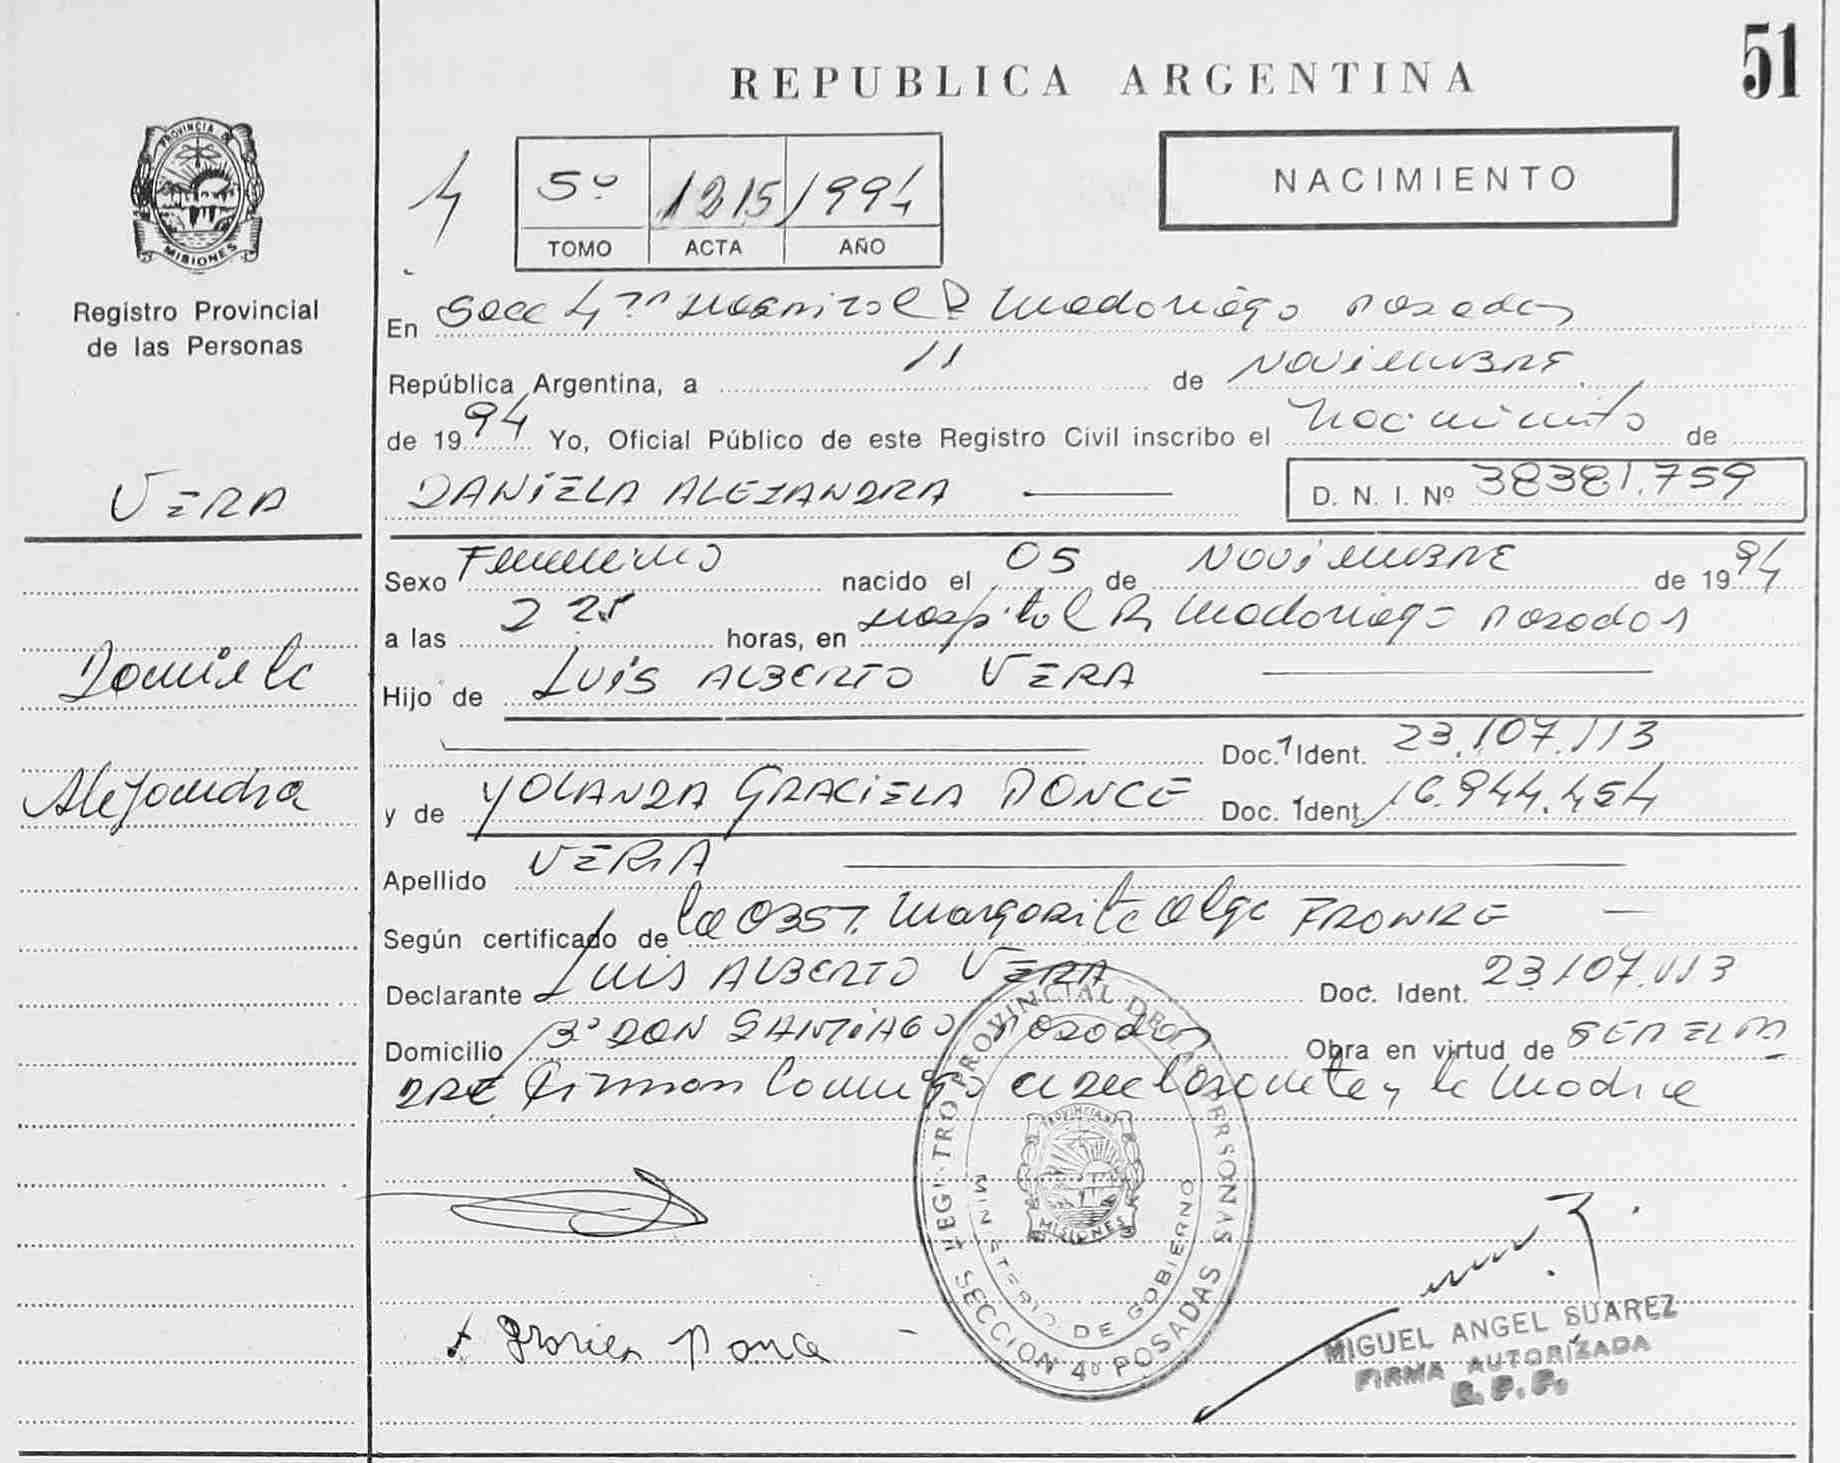 51
REPUBLICA ARGENTINA
NACIMIENTO
4
5º 1215 1994
TOMO ACTA AÑO
PROVINCIA DE
MISIONES
Registro Provincial
de las Personas
En Secc 4ta Hospital R Madariaga Posadas
República Argentina, a 11 de NOVIEMBRE
de 1994 Yo, Oficial Público de este Registro Civil inscribo el Nacimiento de
VERA
DANIELA ALEJANDRA
D. N. I. Nº 38381.759
Sexo Femenino nacido el 05 de NOVIEMBRE de 1994
a las 2 25 horas, en Hospital R Madariaga Posadas
Daniela
Hijo de LUIS ALBERTO VERA
Doc. Ident. 23.107.113
Alejandra
y de YOLANDA GRACIELA PONCE Doc. Ident. 16.944.454
Apellido VERA
Según certificado de la OBST. Margarita Olga
Declarante LUIS ALBERTO VERA Doc. Ident. 23.107.113
Domicilio Bº DON SANTIAGO Posadas Obra en virtud de SER EL PA
DRE Firman Conmigo el declarante y la Madre
REGISTRO PROVINCIAL DE LAS PERSONAS
MINISTERIO DE GOBIERNO
PROVINCIA DE
MISIONES
SECCION 4º POSADAS
Graciela Ponce
MIGUEL ANGEL SUAREZ
FIRMA AUTORIZADA
R. P. P.